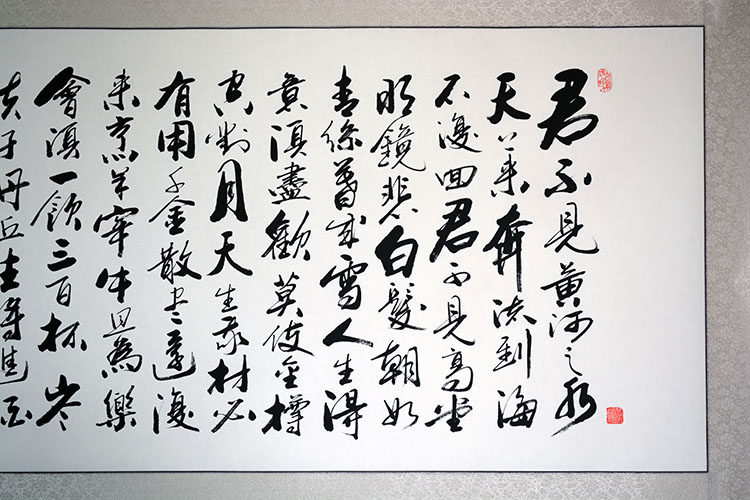 君不見黃河之水
天上来奔流到海
不復回君不見高堂
明鏡悲白髮朝如
青絲暮成雪人生得
意須盡歡莫使金樽
空對月天生我材必
有用千金散尽還復
来烹羊宰牛且為樂
會須一飲三百杯岑
夫子丹丘生將進酒